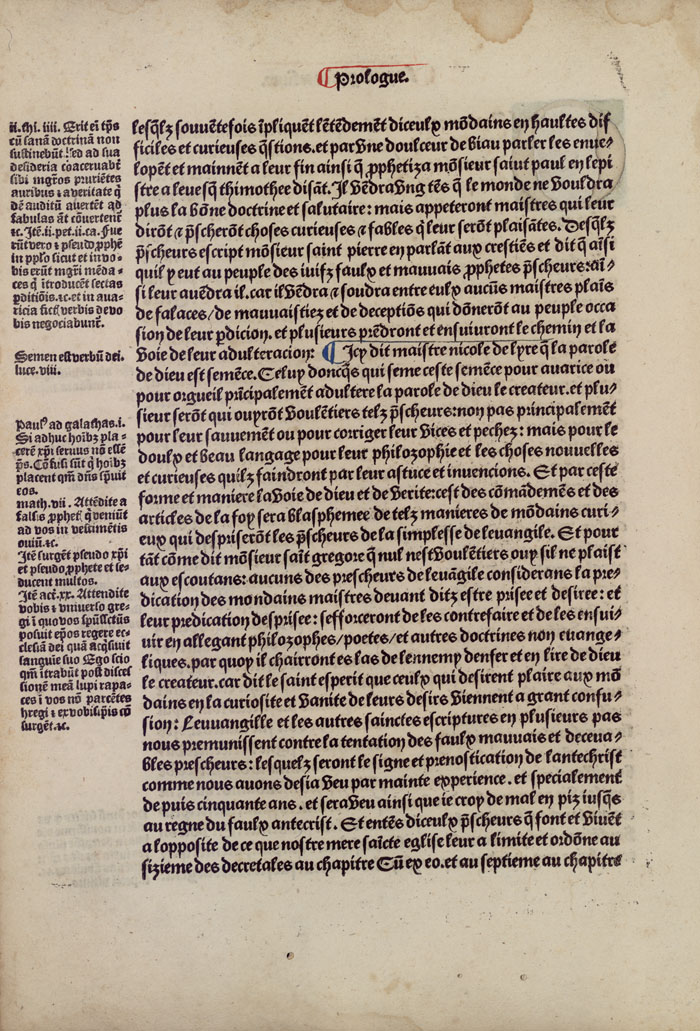 Prologue.
ii.thi. iiii. Erit ei̅ tp̅s
cū sanā doctrinā non
sustinebūt: sed ad sua
desideria coaceruabūt
sibi mgr̄os pruriētes
auribus ⁊ a veritate q̄
dē auditū auertēt ad
fabulas āt cōuertent̄
⁊c. Itē.ii.pet.ii.ca. Fue
rūt vero ⁊ pseudo ꝓphē
in pplo sicut et in vo-
bis erūt mgr̄i mēda-
ces q̄ itroducēt sectas
ꝑditiōis.⁊c.et in aua-
ricia fictꝭ verbis de vo
bis negociabunt̄.
Semen est verbū dei.
luce.viii.
Paulꝰ ad galathas.i.
Si adhuc hoībꝫ pla-
cerē xp̄i seruus nō essē
ps. Cōfusi sūt q̄ hoībꝫ
placent qm̄ dn̄s spuit
eos.
math.vii. Attēdite a
falsis ꝓphetꝭ q̄ veniūt
ad vos in vestimētis
ouiū.⁊c.
Itē surgēt pseudo xp̄i
et pseudo ꝓphete et se-
ducent multos.
Itē act.xx. Attendite
vobis ⁊ vniuerso gre-
gi ī quo vos spūssctūs
posuit ep̄os regere ec-
clesiā dei quā acq̄siuit
sanguīe suo Ego scio
qm̄ ītrabūt pos̄ disces
sionē meā lupi rapa-
ces ī vos nō parcētes
hregi ⁊ ex vobisip̄is cō
surgēt.⁊c.
lesq̄lꝫ souuētefois īpliquēt lētēdemēt diceulx mōdains en haultes dif
ficiles et curieuses q̄stions.et par vne doulceur de biau parler les enue-
lopēt et mainnēt a leur fin ainsi q̄ ꝓphetiza mōsieur saiut paul en lepi
stre a leuesq̄ thimothee disāt. Il vēdra vng tēs q̄ le monde ne vouldra
plus la bōne doctrine et salutaire: mais appeteront maistres qui leur
dirōt ⁊ p̄scherōt choses curieuses ⁊ fables q̄ leur serōt plaisātes. Desq̄lꝫ
p̄scheurs escript mōsieur saint pierre en parlāt aux crestiēs et dit q̄ aīsi
quil y eut au peuple des iuifz faulx et mauuais ꝓphetes p̄scheurs:aī-
si leur auēdra il.car il vēdra ⁊ soudra entre eulx aucūs maistres plais
de falaces/ de mauuaistiez et de deceptiōs qui dōnerōt au peuple occa
sion de leur ꝑdicion. et plusieurs prēdront et ensuiuront le chemin et la
voie de leur adulteracion: ¶ Icy dit maistre nicole de lyre q̄ la parole
de dieu est semēce. Celuy doncq̄s qui seme ceste semēce pour auarice ou
pour orgueil prīcipalemēt adultere la parole de dieu le createur. et plu-
sieur serōt qui ouyrōt voulētiers telz p̄scheurs:non pas principalemēt
pour leur sauuemēt ou pour corriger leur vices et pechez: mais pour le
doulx et beau langage pour leur philosophie et les choses nouuelles
et curieuses quilꝫ faindront par leur astuce et inuencions. Et par ceste
forme et maniere la voie de dieu et de verite:cest des cōmādemēs et des
articles de la foy sera blasphemee de telz manieres de mōdains curi-
eux qui despriserōt les p̄scheurs de la simplesse de leuangile. Et pour
tāt cōme dit mōsieur saīt gregore q̄ nul nest voulētiers ouy sil ne plaist
aux escoutans: aucuns des prescheurs de leuāgile considerans la pre-
dication des mondains maistres deuant ditz estre prisee et desiree: et
leur predication desprisee: sefforceront de les contrefaire et de les ensui-
uir en allegant philozophes/poetes/et autres doctrines non euange-
liques.par quoy il chairront es las de lennemy denfer et en lire de dieu
le createur.car dit le saint esperit que ceulx qui desirent plaire aux mō
dains en la curiosite et vanite de leurs desirs viennent a grant confu-
sion: Leuuangille et les autres sainctes escriptures en plusieurs pas
nous premunissent contre la tentation des faulx mauuais et deceua-
bles prescheurs: lesquelz seront le signe et prenostication de lantechrist
comme nous auons desia veu par mainte experience. et specialement
de puis cinquante ans. et sera veu ainsi que ie croy de mal en piz iusq̄s
au regne du faulx antecrist. Et entēs diceulx p̄scheurs q̄ font et viuēt
a lopposite de ce que nostre mere saīcte eglise leur a limite et ordōne au
sizieme des decretales au chapitre Cū ex eo.et au septieme au chapitre